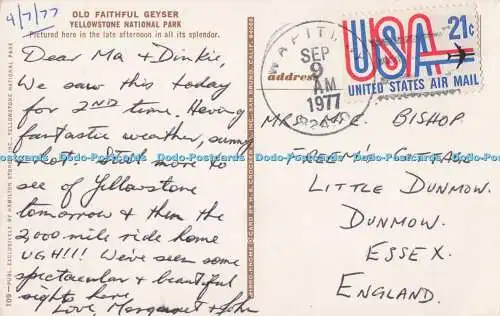 9/7/77
OLD FAITHFUL GEYSER
YELLOWSTONE NATIONAL PARK
Pictured here in the late afternoon in all its splendor.
Dear Ma & Dinkie,
We saw this today
for 2ND time. Having
fantastic weather, sunny
& hot. Still more to
see of Yellowstone
tomorrow & then the
2,000 mile ride home
UGH!!! We've seen some
spectacular & beautiful
sights here.
Love Margaret & John
address
WAPITI
SEP
9
AM
1977
USA 21c
UNITED STATES AIR MAIL
BISHOP
COTTAGE
LITTLE DUNMOW.
DUNMOW.
ESSEX.
ENGLAND.
Dodo-Postcards Dodo-Postcards Dodo-Postcards Dodo-Postcards Dodo-Postcards Dodo-Postcards
109—PUB. EXCLUSIVELY BY HAMILTON STORES, INC., YELLOWSTONE NATIONAL PARK